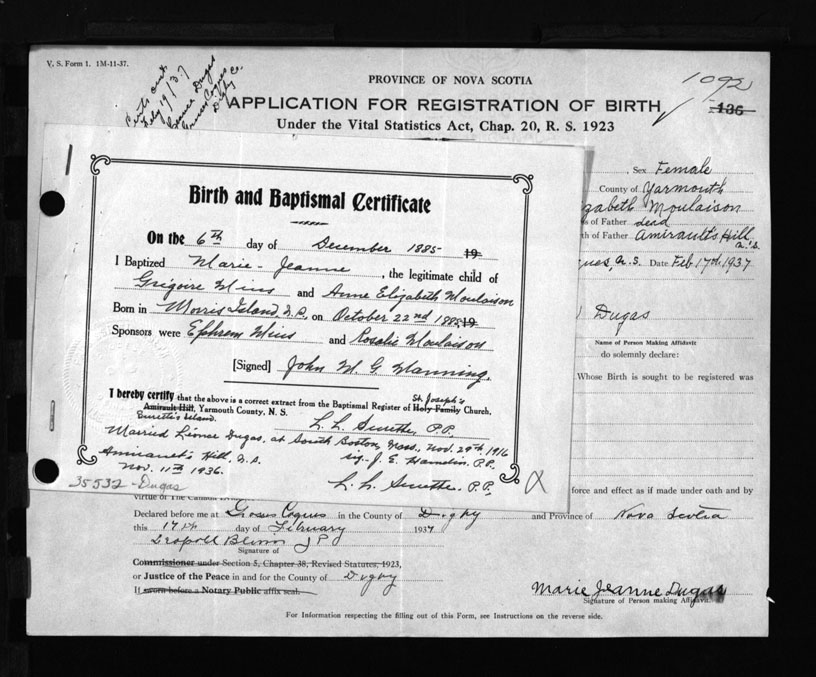 V. S. Form 1. 1M-11-37.
Certs out
Feby 19/37
Dugas
Digby Co.
PROVINCE OF NOVA SCOTIA
1092
136
APPLICATION FOR REGISTRATION OF BIRTH
Under the Vital Statistics Act, Chap. 20, R. S. 1923
, Sex Female
County of Yarmouth
zabeth Moulaison
s of Father dead
th of Father Amirault's Hill, N.S.
ques, N.S. Date Feb 17th 1937
Dugas
Name of Person Making Affidavit
do solemnly declare:
Whose Birth is sought to be registered was
Birth and Baptismal Certificate
On the 6th day of December 1885 19
I Baptized Marie-Jeanne, the legitimate child of
Grégoire Mius and Anne Elizabeth Moulaison
Born in Morris Island, N.S., on October 22nd 1885 19
Sponsors were Ephrem Mius and Rosalie Moulaison
[Signed] John M. G. Manning.
I hereby certify that the above is a correct extract from the Baptismal Register of Holy Family St. Joseph's Church,
Amirault Hill, Yarmouth County, N. S.
Surette's Island.
L. L. Surette, P.P.
Married Dugas, at South Boston, Mass., Nov. 29th 1916
sig. J. E. Hamelin. P.P.
Amirault's Hill, N.S.
Nov. 11th 1936.
L. L. Surette. P.P.
35532-Dugas
force and effect as if made under oath and by
virtue of The
Declared before me at Grosses Coques in the County of Digby and Province of Nova Scotia
this 17th day of February 1937
J P
Signature of
Commissioner under Section 5, Chapter 38, Revised Statutes, 1923,
or Justice of the Peace in and for the County of Digby
If sworn before a Notary Public affix seal.
Marie Jeanne Dugas
Signature of Person making Affidavit.
For Information respecting the filling out of this Form, see Instructions on the reverse side.